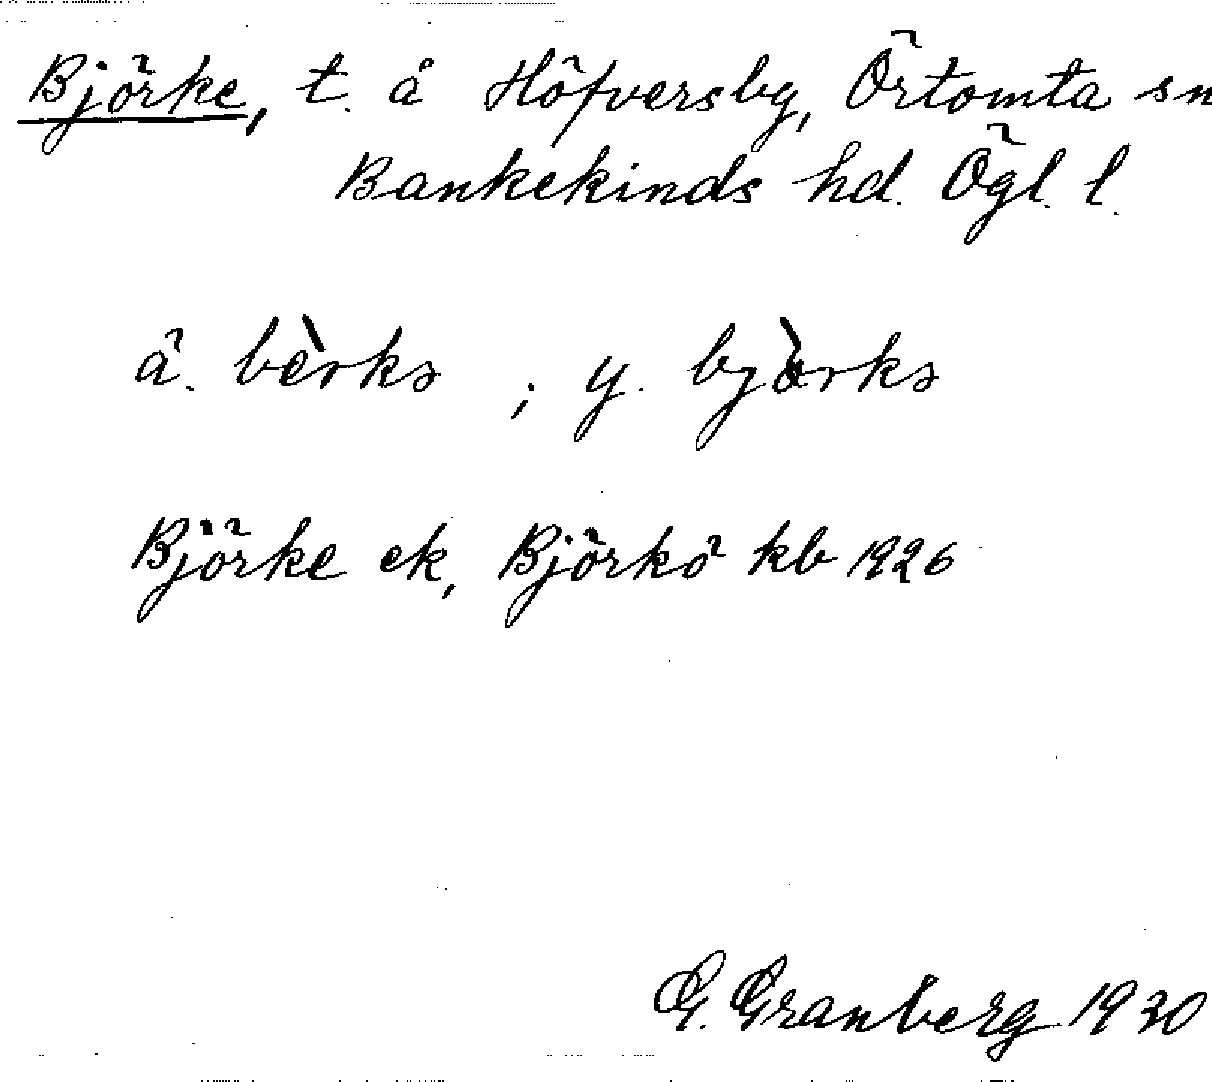 Björke, t. å Höfversby, Örtomta sn
Bankekinds hd. Ögl. l.
ä. bèrkə ; y. bjòrkə
Björke ek, Björkö kb 1926
G. Granberg 1930